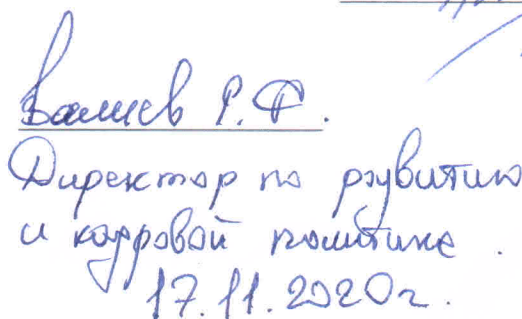 Валиев Р.Ф.
Директор по развитию
и кадровой политике.
17.11.2020г.